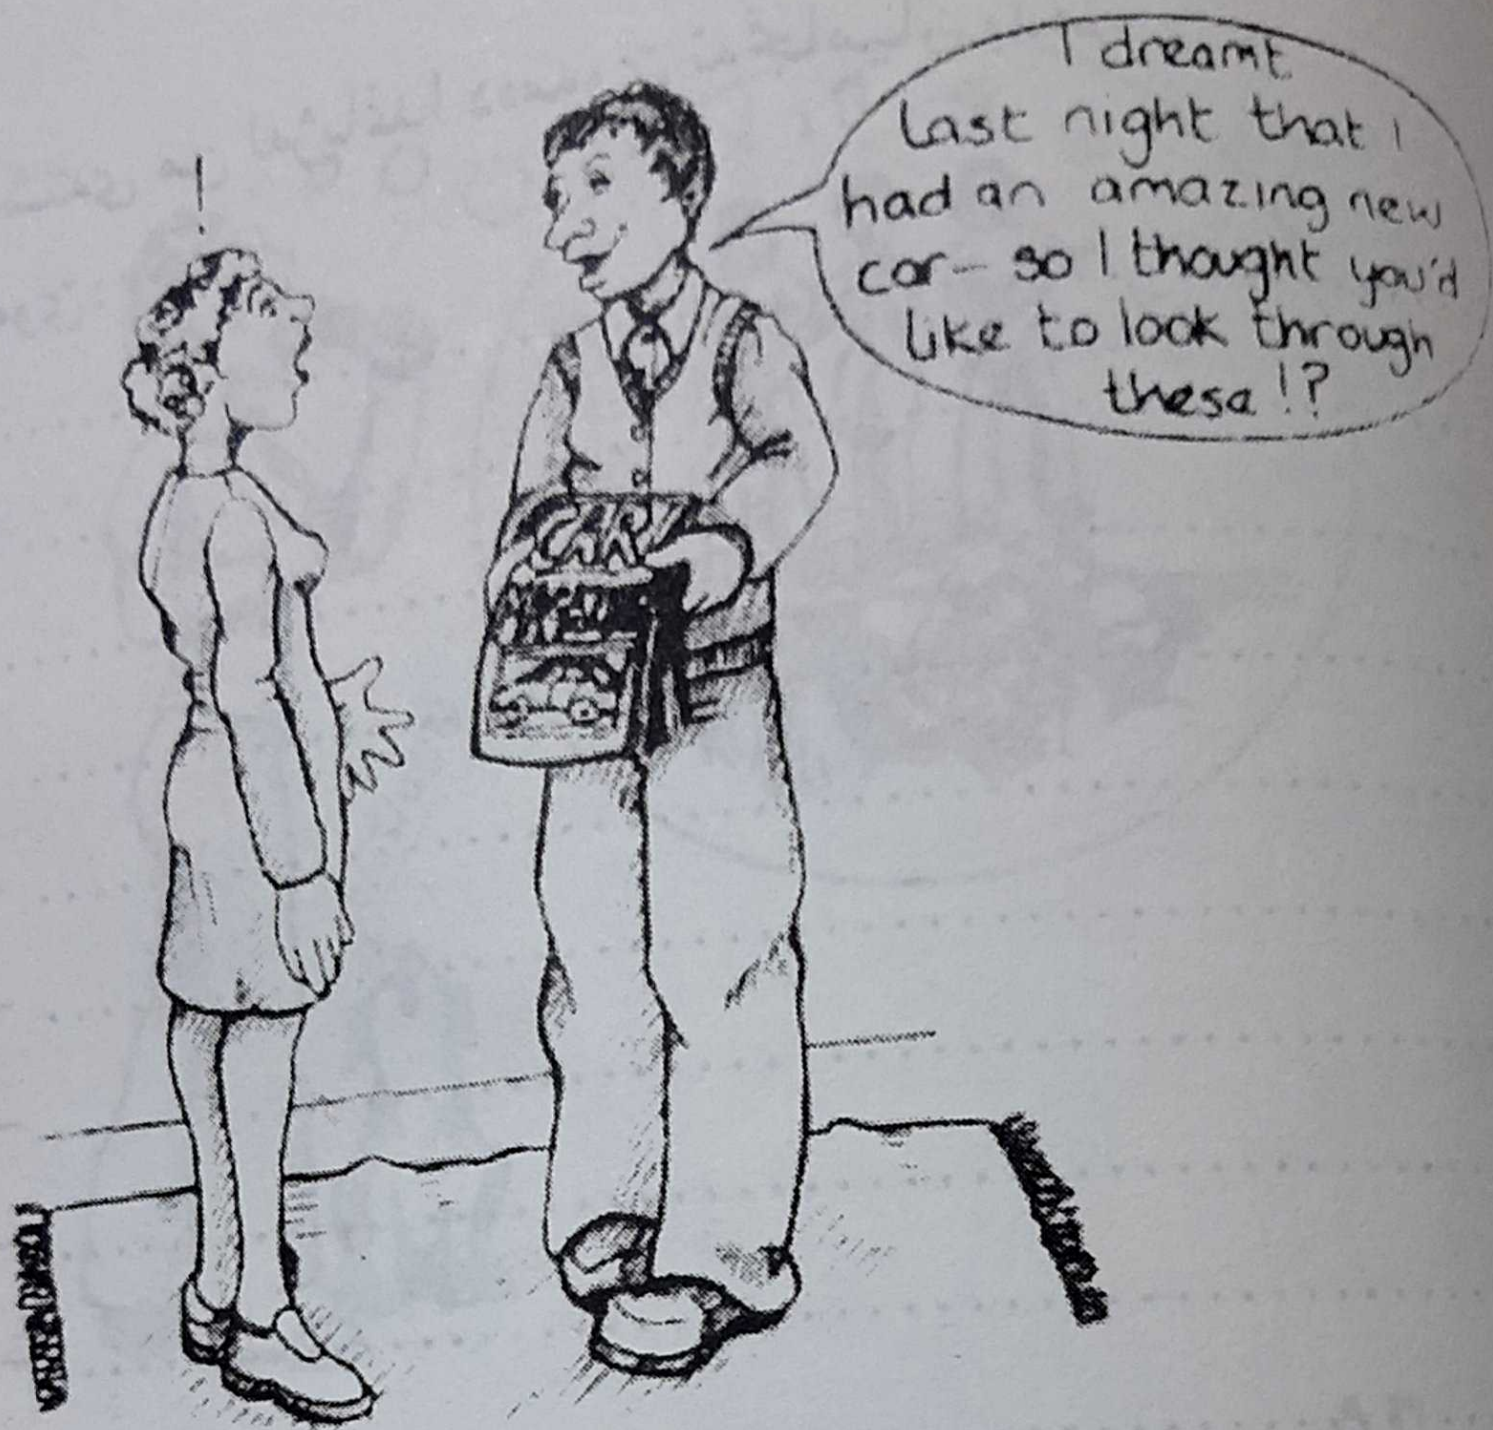 !
I dreamt
last night that I
had an amazing new
car – so I thought you'd
like to look through
these!?
CAR